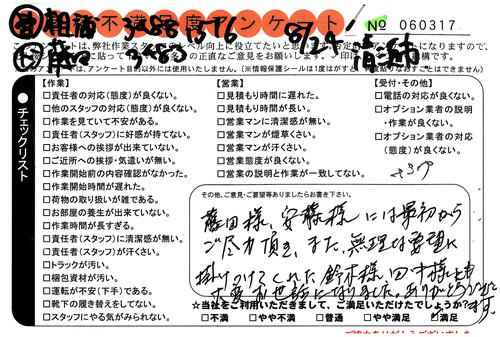 不満足度アンケート
No 060317
8/24
チェックリスト
【作業】
□責任者の対応(態度)が良くない。
□他のスタッフの対応(態度)が良くない。
□作業を見ていて不安がある。
□責任者(スタッフ)に好感が持てない。
□お客様への挨拶が出来ていない。
□ご近所への挨拶・気遣いが無い。
□作業開始前の内容確認がなかった。
□作業開始時間が遅れた。
□荷物の取り扱いが雑である。
□お部屋の養生が出来ていない。
□作業時間が長すぎる。
□責任者(スタッフ)に清潔感が無い。
□責任者(スタッフ)が汗くさい。
□トラックが汚い。
□梱包資材が汚い。
□運転が不安(下手)である。
□靴下の履き替えをしてない。
□スタッフにやる気がみられない。
【営業】
□見積もり時間に遅れた。
□見積もり時間が長い。
□営業マンに清潔感が無い。
□営業マンが煙草くさい。
□営業マンが汗くさい。
□営業態度が良くない。
□営業の説明と作業が一致してない。
【受付・その他】
□電話の対応が良くない。
□オプション業者の説明
・作業が良くない。
□オプション業者の対応
(態度)が良くない。
その他、ご意見・ご要望等ありましたらお書き下さい。
藤田様、安藤様には最初から
ご尽力頂き、また、無理な要望に
掛けつけてくれた鈴木様、田中様とも
大変お世話になりました。ありがとうございます。
★当社をご利用いただきまして、ご満足いただけたでしょうか?
□不満 □やや不満 □普通 □やや満足 □満足